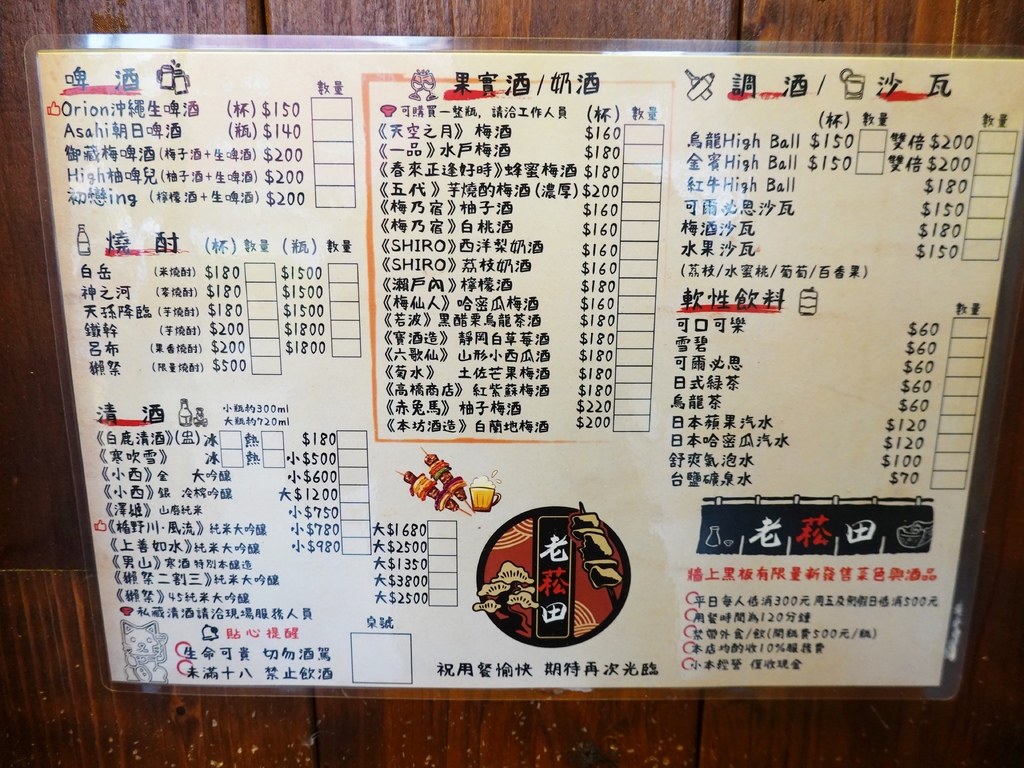 啤 酒
數量
Orion沖繩生啤酒 (杯) $150
Asahi朝日啤酒 (瓶) $140
御藏梅啤酒(梅子酒+生啤酒) $200
High柚啤兒(柚子酒+生啤酒) $200
初戀ing (檸檬酒+生啤酒) $200
燒 酎 (杯) 數量 (瓶) 數量
白岳 (米燒酎) $180 $1500
神之河 (麥燒酎) $180 $1500
天孫降臨(芋燒酎) $180 $1500
鐵幹 (芋燒酎) $200 $1800
呂布 (果香燒酎) $200 $1800
獺祭 (限量燒酎) $500
清 酒
小瓶約300ml
大瓶約720ml
《白鹿清酒》(盅) 冰 熱 $180
《寒吹雪》 冰 熱 小$500
《小西》金 大吟釀 小$600
《小西》銀 冷榨吟釀 大$1200
《澤姬》山廢純米 小$750
《楯野川·風流》純米大吟釀 小$780 大$1680
《上善如水》純米大吟釀 小$980 大$2500
《男山》寒酒特別本釀造 大$1350
《獺祭二割三》純米大吟釀 大$3800
《獺祭》45純米大吟釀 大$2500
私藏清酒請洽現場服務人員
貼心提醒
生命可貴 切勿酒駕
未滿十八 禁止飲酒
桌號
果實酒/奶酒
可購買一整瓶，請洽工作人員 (杯) 數量
《天空之月》 梅酒 $160
《一品》水戶梅酒 $180
《春來正逢好時》蜂蜜梅酒 $180
《五代》芋燒酎梅酒(濃厚) $200
《梅乃宿》柚子酒 $160
《梅乃宿》白桃酒 $160
《SHIRO》西洋梨奶酒 $160
《SHIRO》荔枝奶酒 $160
《瀨戶內》檸檬酒 $180
《梅仙人》哈密瓜梅酒 $160
《若波》黑醋栗烏龍茶酒 $180
《寶酒造》靜岡白草莓酒 $180
《六歌仙》山形小西瓜酒 $180
《菊水》 土佐芒果梅酒 $180
《高橋商店》紅紫蘇梅酒 $180
《赤兔馬》柚子梅酒 $220
《本坊酒造》白蘭地梅酒 $200
老菘田
祝用餐愉快 期待再次光臨
調 酒/ 沙 瓦
(杯) 數量 數量
烏龍High Ball $150 雙倍 $200
金賓High Ball $150 雙倍 $200
紅牛High Ball $180
可爾必思沙瓦 $150
梅酒沙瓦 $180
水果沙瓦 $150
(荔枝/水蜜桃/葡萄/百香果)
軟性飲料 數量
可口可樂 $60
雪碧 $60
可爾必思 $60
日式綠茶 $60
烏龍茶 $60
日本蘋果汽水 $120
日本哈密瓜汽水 $120
舒爽氣泡水 $100
台鹽礦泉水 $70
老菘田
牆上黑板有限量新發售菜色與酒品
平日每人低消300元 周五及例假日低消500元
用餐時間為120分鐘
禁帶外食/飲(開瓶費500元/瓶)
本店均酌收10%服務費
小本經營 僅收現金